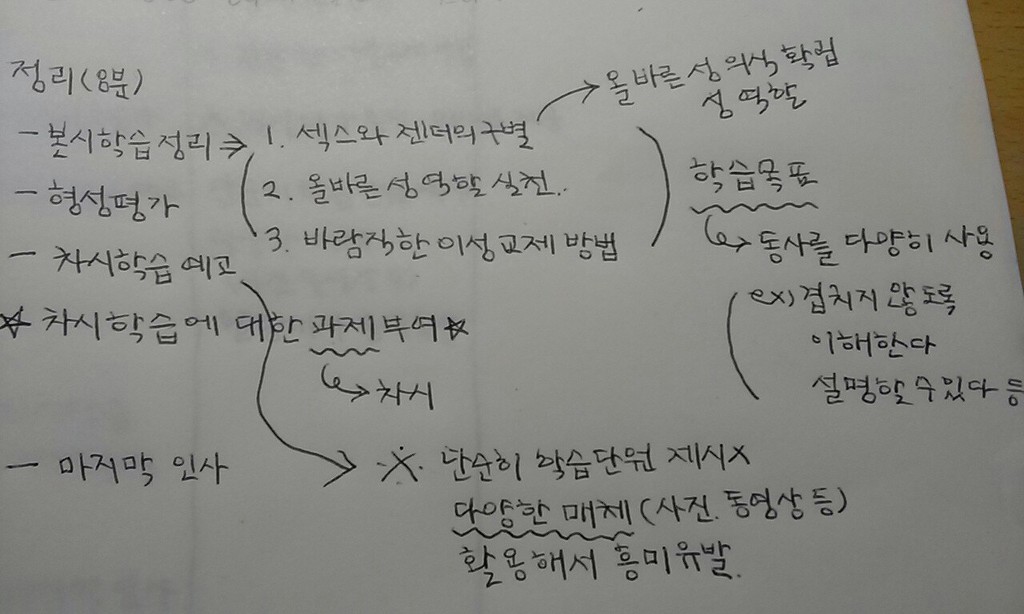 정리(8분)
- 본시학습정리 ⇒ 1. 섹스와 젠더의 구별 → 올바른 성 의식 확립
성 역할
- 형성평가 2. 올바른 성 역할 실천.
- 차시학습 예고 3. 바람직한 이성교제 방법
학습목표
↳ 동사를 다양히 사용
ex) 겹치지 않도록
이해한다
설명할 수 있다 등
☆ 차시학습에 대한 과제부여 ☆
↳ 차시
- 마지막 인사
※ 단순히 학습단원 제시X
다양한 매체 (사진. 동영상 등)
활용해서 흥미유발.